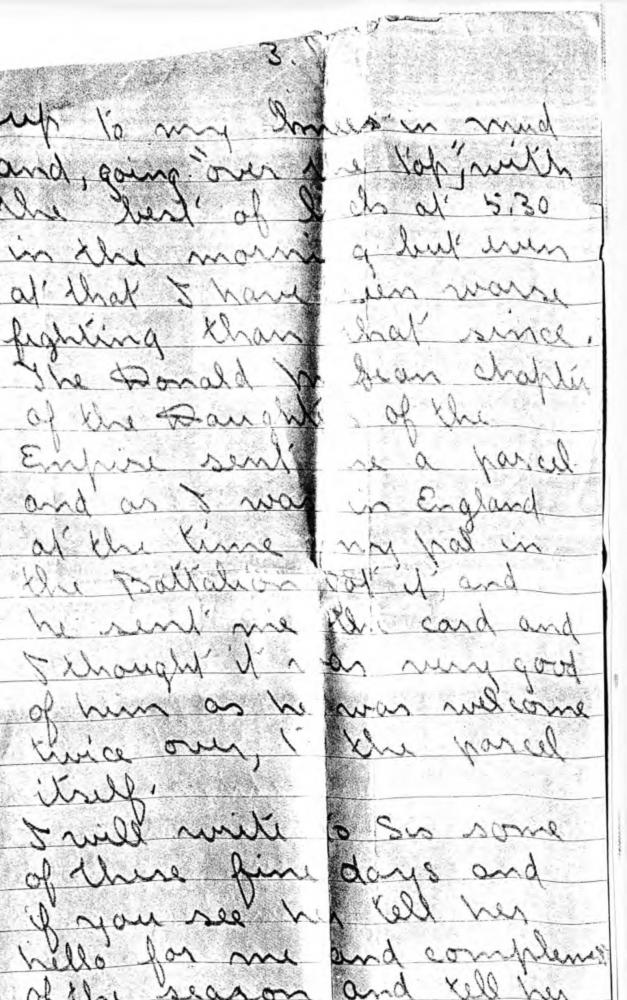 3.
up to my knees in mud
and, going "over the top", with
the best of luck at 5.30
in the morning but even
at that I have seen worse
fighting than that since.
The Donald Bean chapter
of the Daughters of the
Empire sent me a parcel
and as I was in England
at the time my pal in
the Battalion got it, and
he sent me the card and
I thought it was very good
of him as he was welcome
twice over, to the parcel
itself.
I will write to Sis some
of these fine days and
if you see her tell her
hello for me and compliments
of the season and tell her